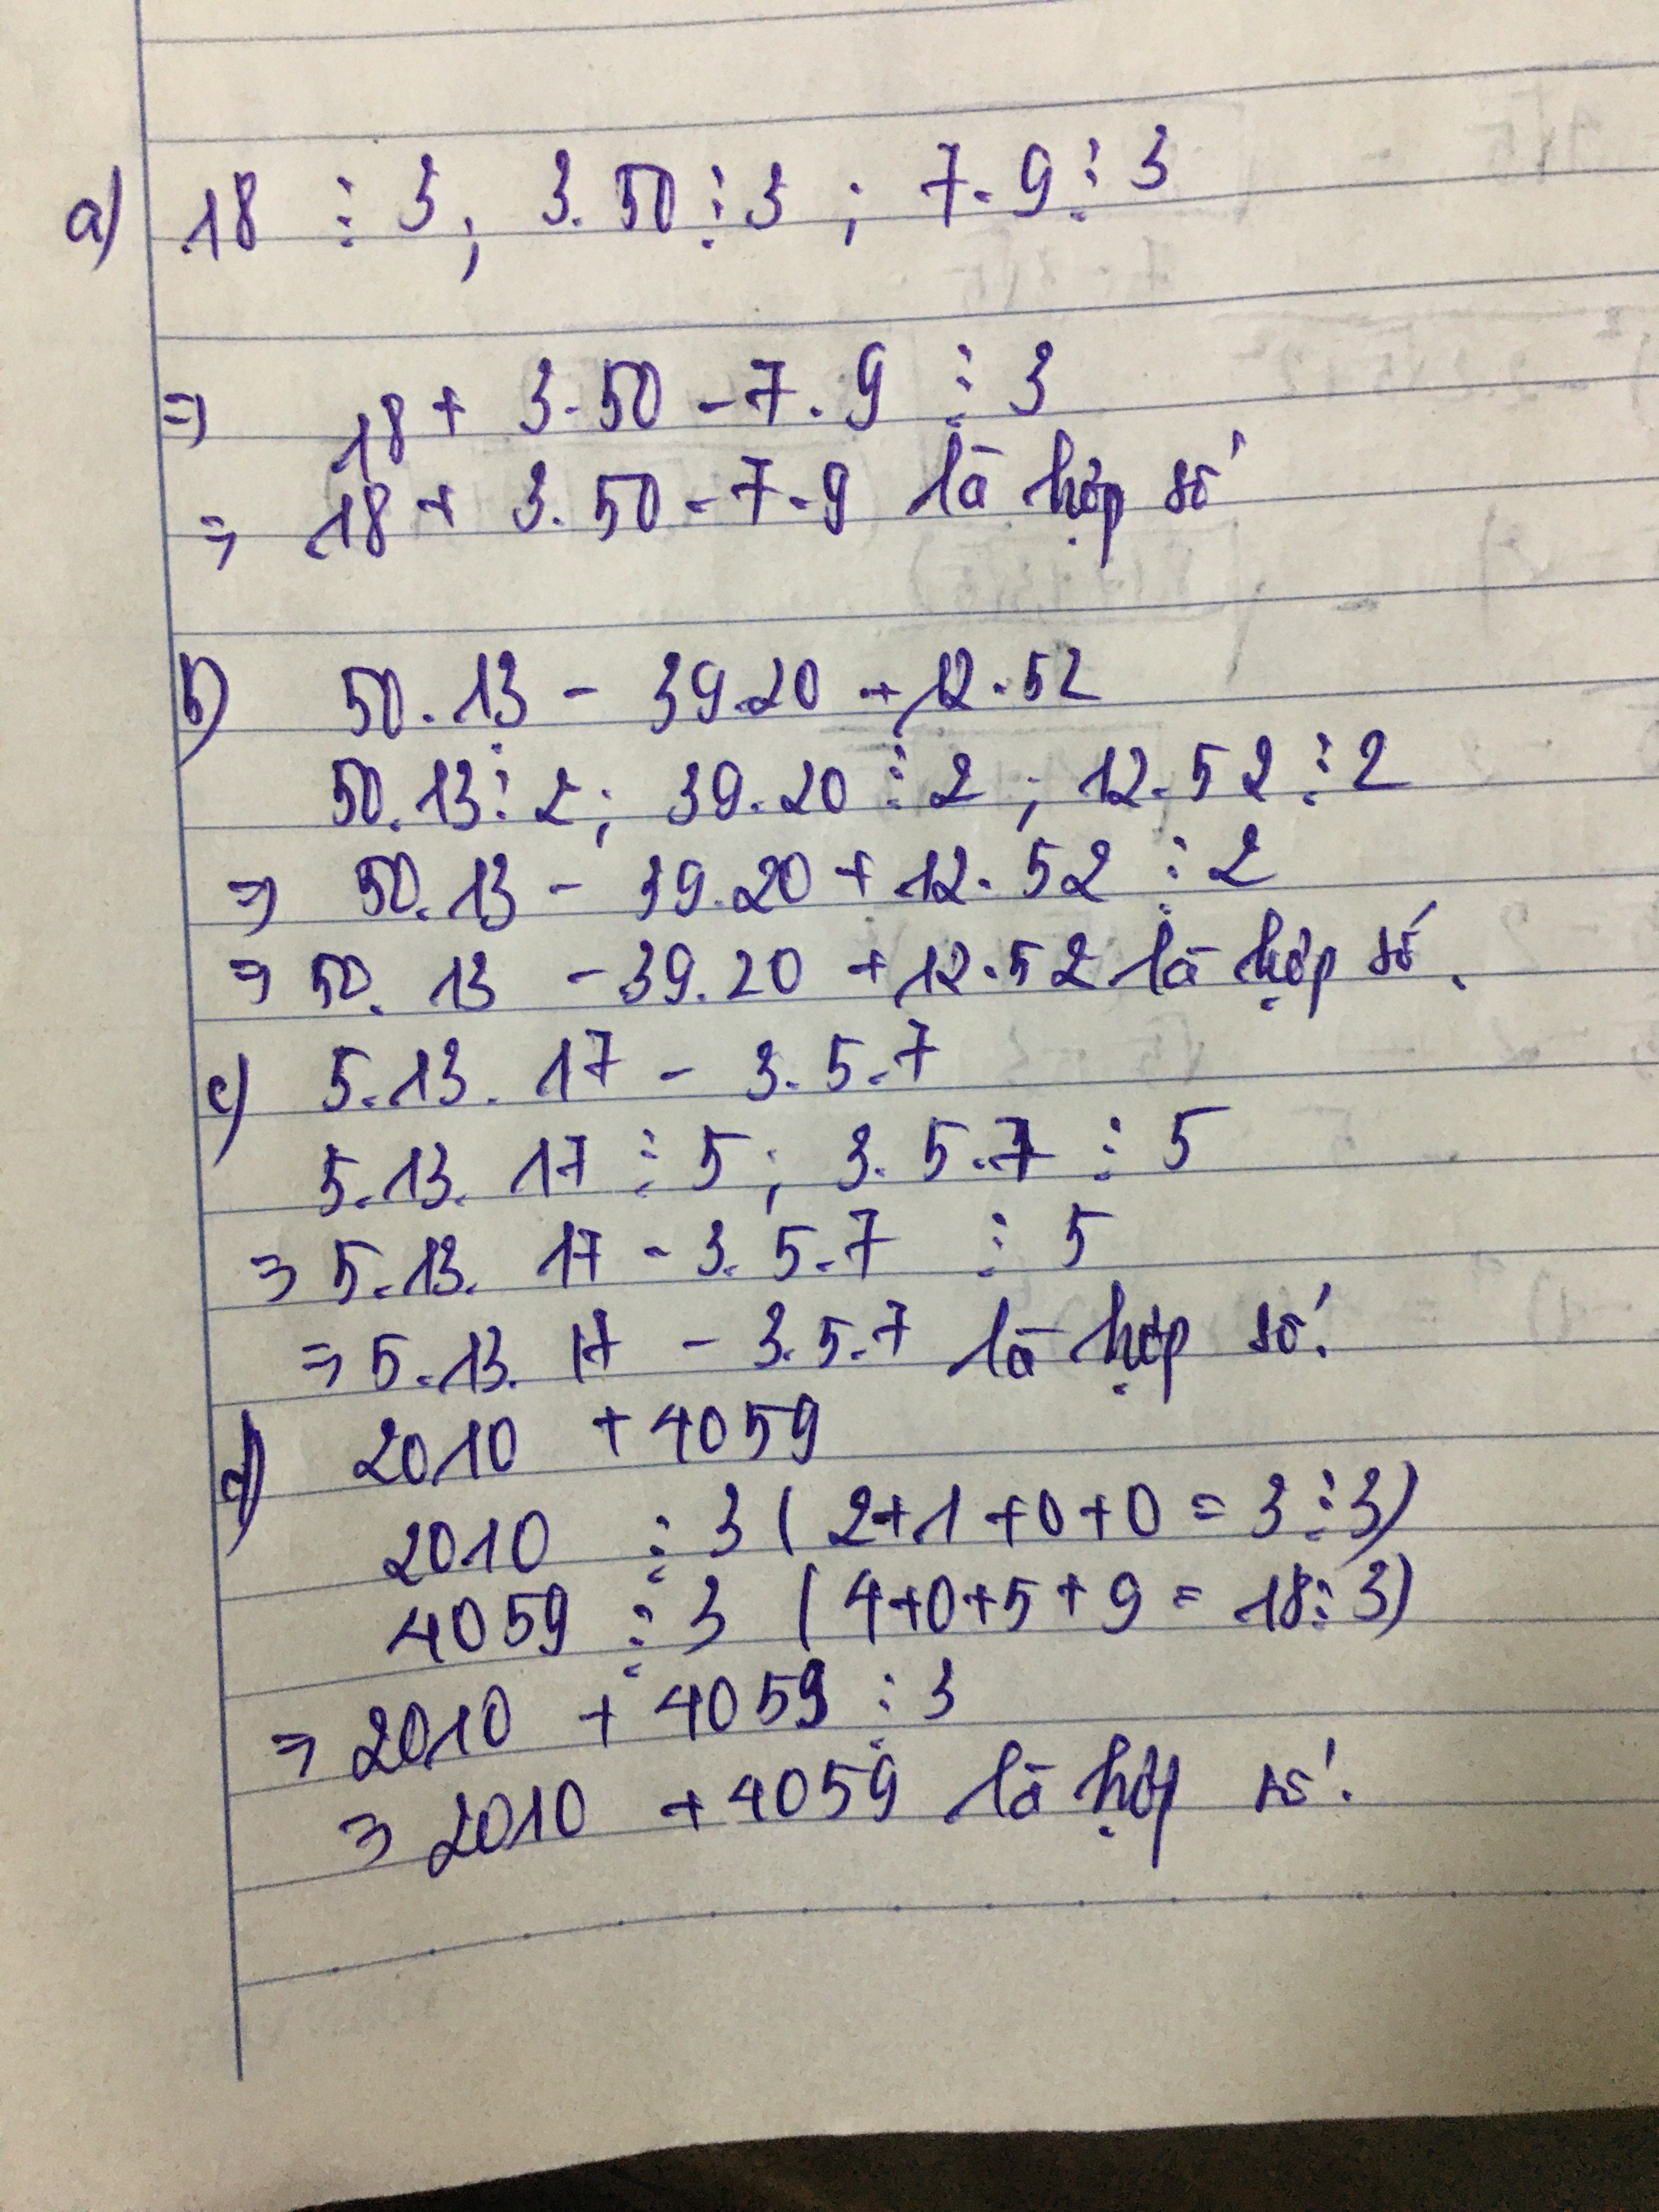 a) 18 ⋮ 3 ; 3.50 ⋮ 3 ; 7.9 ⋮ 3
=> 18 + 3.50 - 7.9 ⋮ 3
=> 18 + 3.50 - 7.9 là hợp số
b) 50.13 - 39.20 + 12.52
50.13 ⋮ 2 ; 39.20 ⋮ 2 ; 12.52 ⋮ 2
=> 50.13 - 39.20 + 12.52 ⋮ 2
=> 50.13 - 39.20 + 12.52 là hợp số.
c) 5.13.17 - 3.5.7
5.13.17 ⋮ 5 ; 3.5.7 ⋮ 5
=> 5.13.17 - 3.5.7 ⋮ 5
=> 5.13.17 - 3.5.7 là hợp số.
d) 2010 + 4059
2010 ⋮ 3 ( 2+1+0+0 = 3 ⋮ 3)
4059 ⋮ 3 ( 4+0+5+9 = 18 ⋮ 3)
=> 2010 + 4059 ⋮ 3
=> 2010 + 4059 là hợp số.